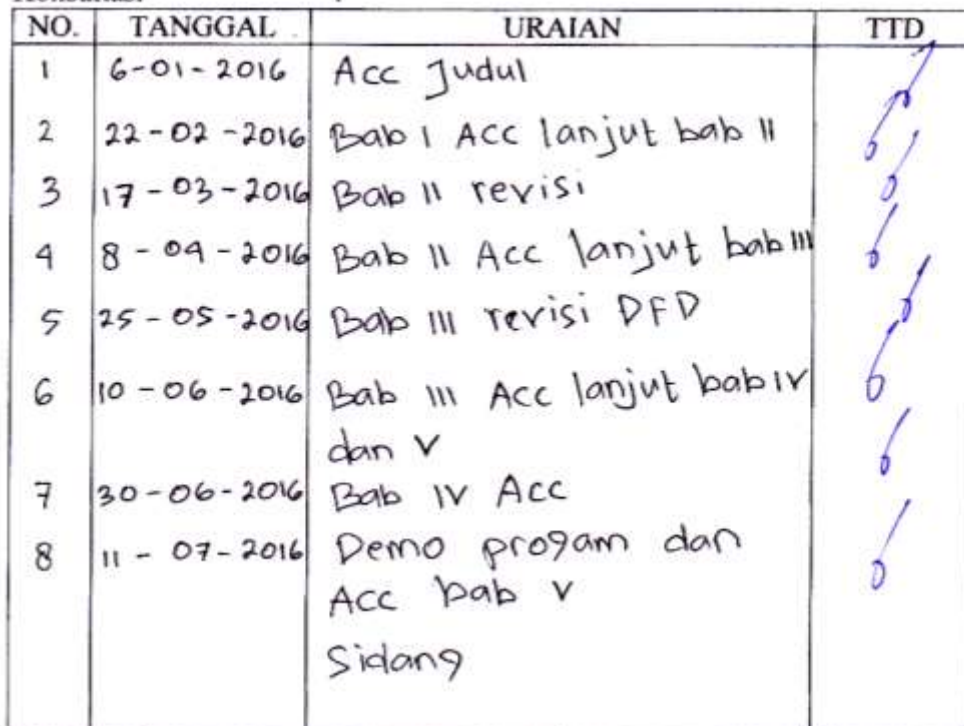 NO. TANGGAL URAIAN TTD
1 6-01-2016 Acc Judul
2 22-02-2016 Bab I Acc lanjut bab II
3 17-03-2016 Bab II revisi
4 8-04-2016 Bab II Acc lanjut bab III
5 25-05-2016 Bab III revisi DFD
6 10-06-2016 Bab III Acc lanjut bab IV
dan V
7 30-06-2016 Bab IV Acc
8 11-07-2016 Demo progam dan
Acc bab V
Sidang